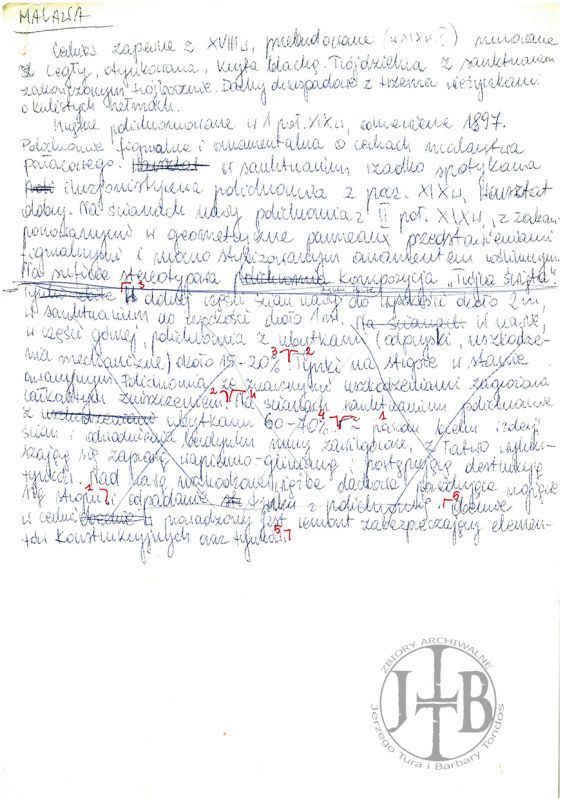 MALAWA
Cerkiew zapewne z XVIII w, przebudowana (w XIX w.?) murowana
z cegły, otynkowana, kryta blachą. Trójdzielna z sanktuarium
zakończonym trójbocznie. Dachy dwuspadowe z trzema wieżyczkami
o kulistych hełmach.
Wnętrze polichromowane w 1 poł. XIX w, 1897.
Polichromia figuralna i ornamentalna o cechach malarstwa
w sanktuarium rzadko spotykana
iluzjonistyczna polichromia z pocz. XIX w, Warsztat
dobry. Na ścianach nawy polichromia z II poł. XIX w, z zakom-
ponowanymi w geometryczne panneaux przedstawieniami
figuralnymi i mocno stylizowanym ornamentem roślinnym.
Na suficie stereotypowa polichromia kompozycja „Trójca Święta"
Tynki dolnej części ścian nawy do wysokości około 2 m,
w sanktuarium do wysokości około 1 m. Na ścianach w nawie,
w części górnej polichromia z ubytkami (odpryski, uszkodze-
nia mechaniczne) około 15-20% Tynki na stropie w stanie
awaryjnym. Polichromia ze znacznymi uszkodzeniami zagrożona
całkowitym zniszczeniem. Na ścianach sanktuarium polichromie
z uszkodzeniami ubytkami 60-70% - pomimo wielu izolacji
ścian i odwodnienia budynku mury zawilgocone, z łatwo
się zaprawą wapienno-glinianą i postępującą destrukcją
tynków. Nad nawą więźba dachowa powodująca ugięcie
się stropu i odpadanie tynku z polichromią. Obecnie
w cerkwi prowadzony jest remont zabezpieczający elemen-
tów konstrukcyjnych oraz tynków.
ZBIORY ARCHIWALNE
JTBT
Jerzego Tura i Barbary Tondos